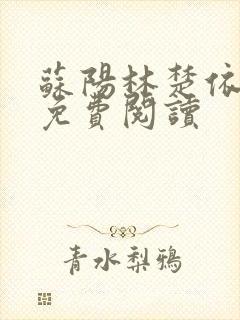 蘇陽林楚依
免費閱讀
青水梨鴉